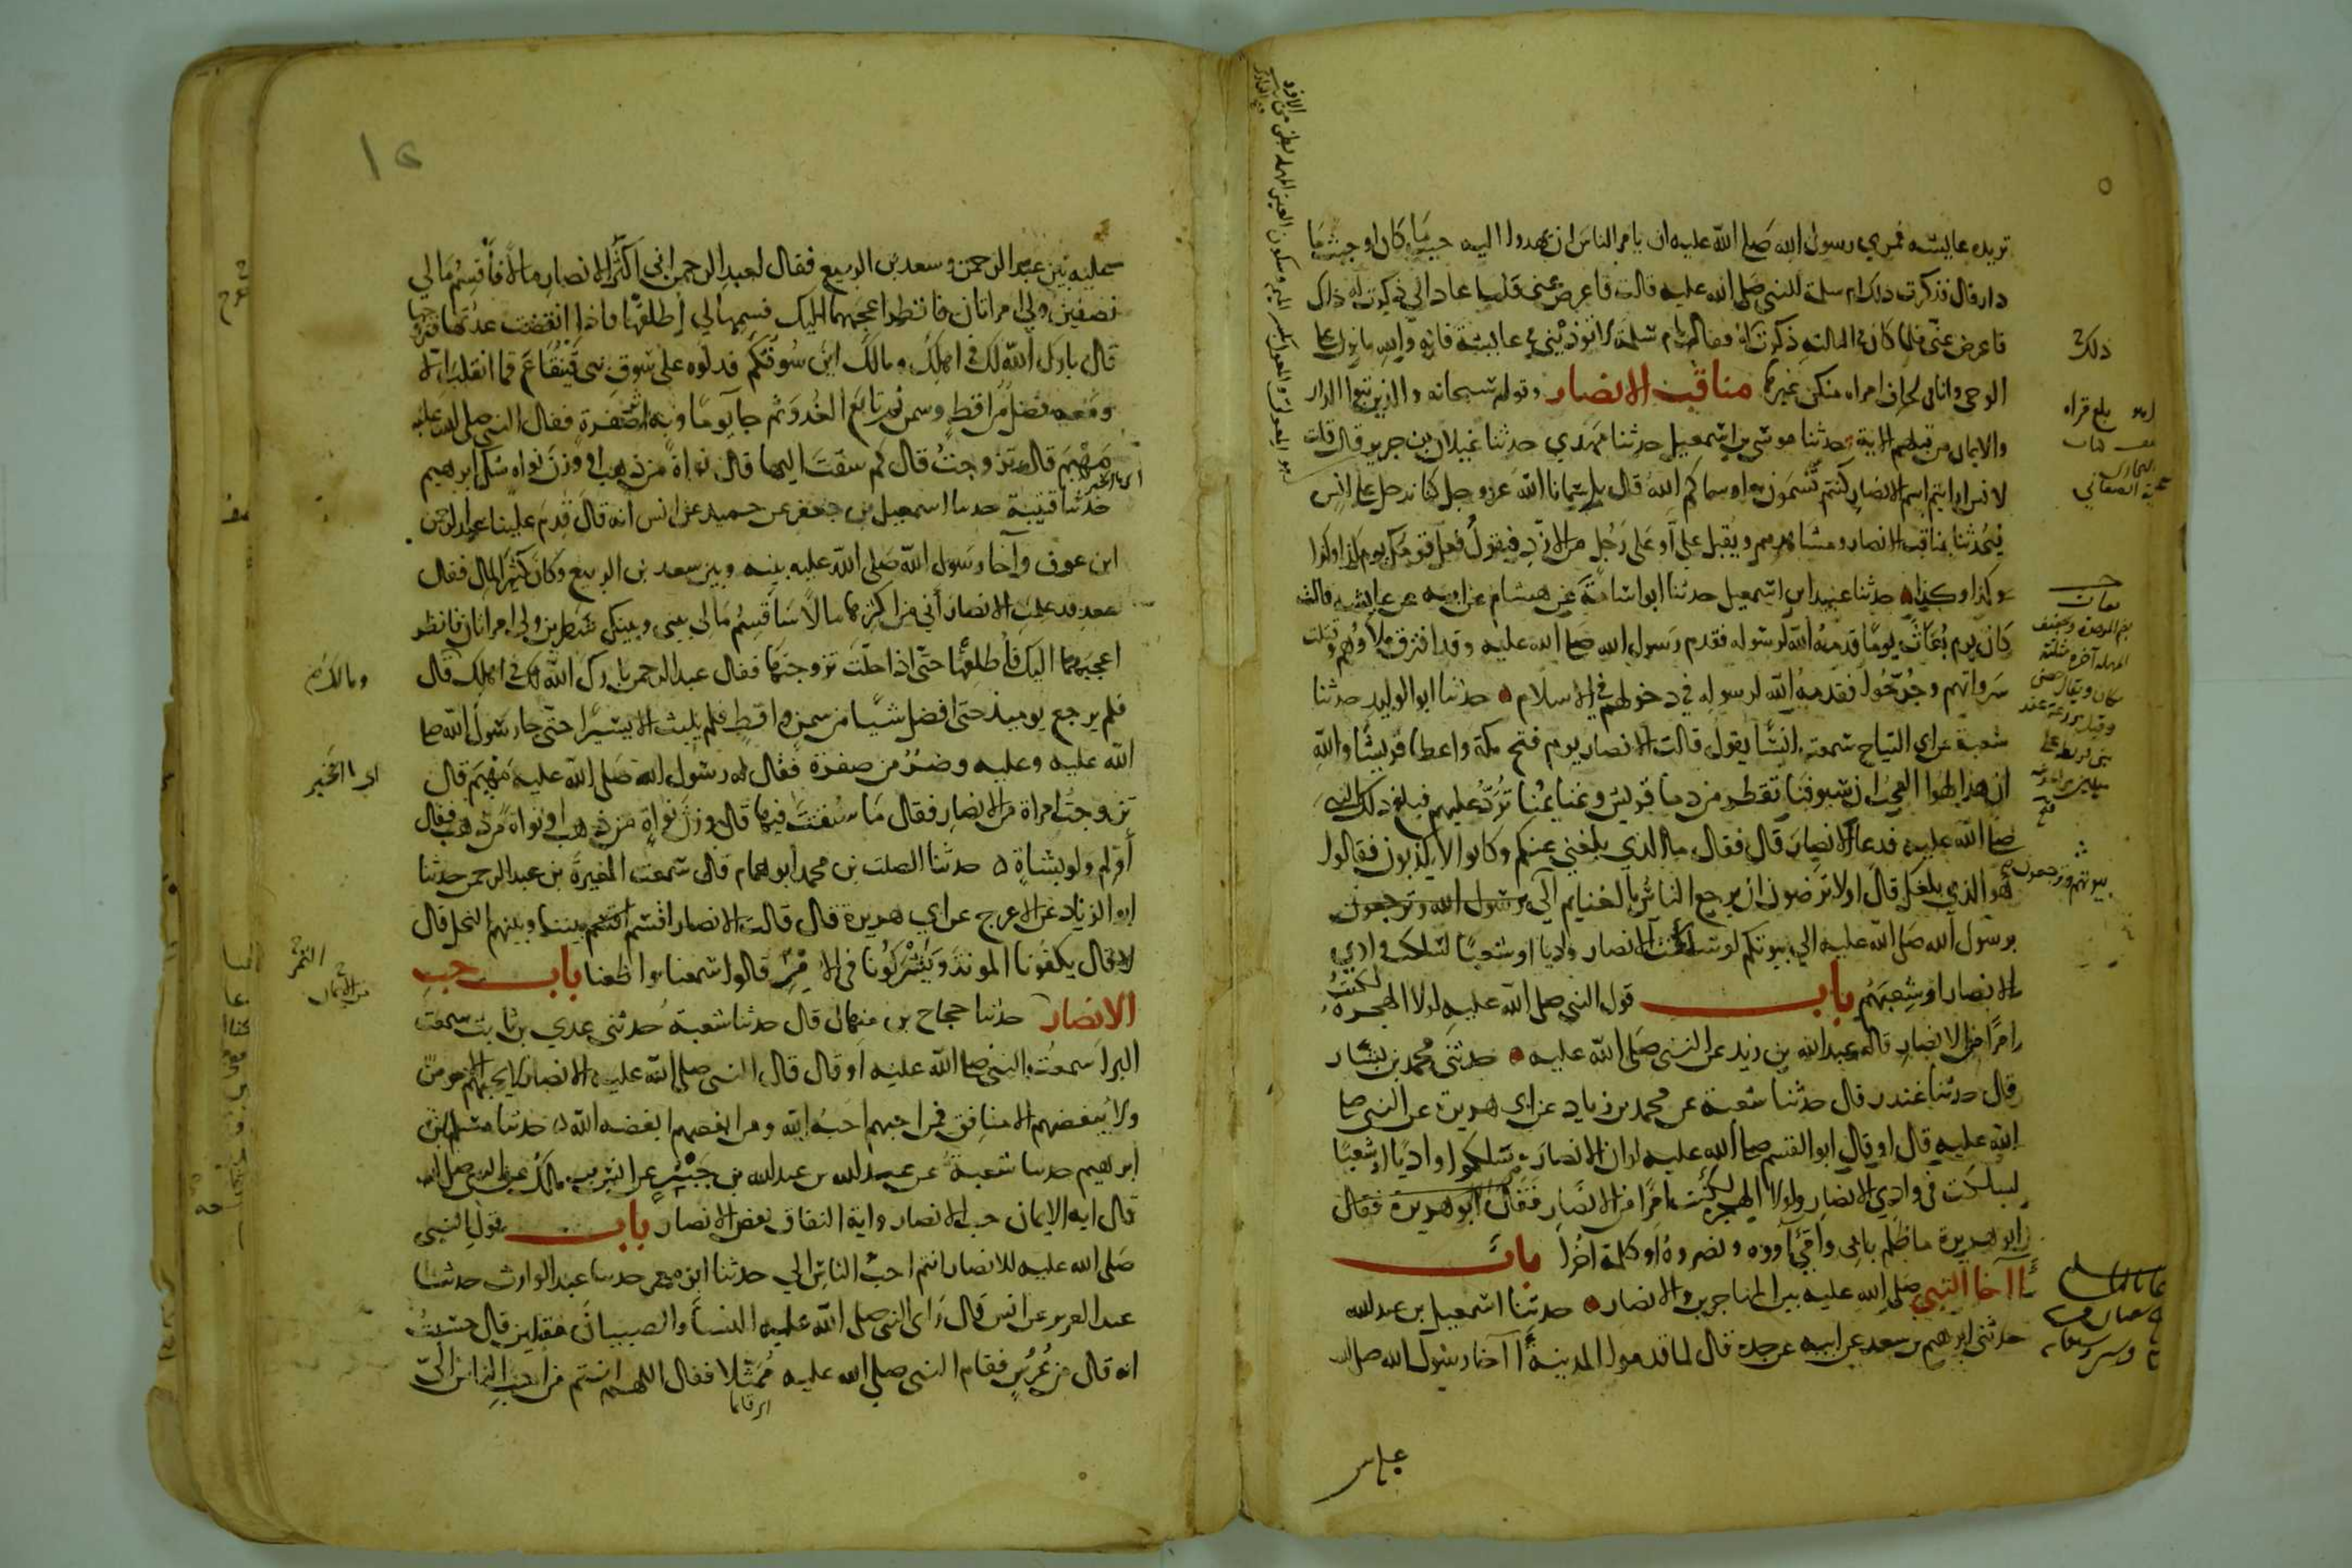 تريده عايشه فمري رسول الله صلى الله عليه ان يامر الناس ان يهدوا اليه حيث ما كان او حيث ما
دار قال فذكرت ذلك ام سلمة للنبي صلى الله عليه قالت فاعرض عني فلما عاد الي ذكرت له ذلك
فاعرض عني فلما كان في الثالثة ذكرت له فقال يا ام سلمة لا توذيني في عايشة فانه والله ما نزل علي
الوحي وانا في لحاف امراه منكن غيرها مناقب الانصار وقوله سبحانه والذين تبوا الدار
والايمان من قبلهم الاية حدثنا موسى بن اسمعيل حدثنا مهدي حدثنا غيلان بن جرير قال قلت
لانس ارايتم اسم الانصار كنتم تسمون به او سماكم الله قال بل سمانا الله عز وجل كنا ندخل على انس
فيحدثنا بمناقب الانصار ومشاهدهم ويقبل علي او على رجل من الازد فيقول فعل قومك يوم كذا وكذا
وكذا وكذا حدثنا عبيد ابن اسمعيل حدثنا ابو اسامة عن هشام عن ابيه عن عايشه قالت
كان يوم بعاث يوما قدمه الله لرسوله فقدم رسول الله صلى الله عليه وقد افترق ملاوهم وقتلت
سرواتهم وجرحوا فقدمه الله لرسوله في دخولهم في الاسلام حدثنا ابو الوليد حدثنا
شعبة عن ابي التياح سمعت انسا يقول قالت الانصار يوم فتح مكة واعطا قريشا والله
ان هذا لهوا العجب ان سيوفنا تقطر من دما قريش وغنايمنا ترد عليهم فبلغ ذلك النبي
صلى الله عليه فدعا الانصار قال فقال ما الذي بلغني عنكم وكانوا لا يكذبون فقالوا
هو الذي بلغك قال اولا ترضون ان يرجع الناس بالغنايم الى بيوتهم وترجعون
برسول الله صلى الله عليه الى بيوتكم لو سلكت الانصار واديا او شعبا لسلكت وادي
الانصار او شعبهم باب قول النبي صلى الله عليه لولا الهجرة لكنت
امرا من الانصار قاله عبد الله بن زيد عن النبي صلى الله عليه حدثني محمد بن بشار
قال حدثنا غندر قال حدثنا شعبة عن محمد بن زياد عن ابي هريرة عن النبي صلى
الله عليه قال او قال ابو القسم صلى الله عليه لو ان الانصار سلكوا واديا او شعبا
لسلكت في وادي الانصار ولولا الهجرة لكنت امرا من الانصار فقال ابو هريرة فقال
ابو هريرة ما ظلم بابي وامي آووه ونصروه او كلمة اخرا باب
آخا النبي صلى الله عليه بين المهاجرين والانصار حدثنا اسمعيل بن عبد الله
حدثني ابرهيم بن سعد عن ابيه عن جده قال لما قدموا المدينة آخا رسول الله صلى الله
ذلك
بلغ قراه
بعاث
بيوتهم وترجعون
عليه
بين عبد الرحمن وسعد بن الربيع فقال لعبد الرحمن اني اكثر الانصار مالا فاقسم مالي
نصفين ولي امراتان فانظر اعجبهما اليك فسمها لي اطلقها فاذا انقضت عدتها فتزوجها
قال بارك الله لك في اهلك ومالك اين سوقكم فدلوه على سوق بني قينقاع فما انقلب الا
ومعه فضل من اقط وسمن ثم تابع الغدو ثم جا يوما وبه اثر صفرة فقال النبي صلى الله عليه
مهيم قال تزوجت قال كم سقت اليها قال نواة من ذهب او وزن نواه شك ابرهيم
حدثنا قتيبة حدثنا اسمعيل بن جعفر عن حميد عن انس انه قال قدم علينا عبد الرحمن
ابن عوف وآخا رسول الله صلى الله عليه بينه وبين سعد بن الربيع وكان كثير المال فقال
سعد قد علمت الانصار اني من اكثرها مالا ساقسم مالي بيني وبينك شطرين ولي امراتان فانظر
اعجبهما اليك فاطلقها حتى اذا حلت تزوجتها فقال عبد الرحمن بارك الله لك في اهلك قال
فلم يرجع يوميذ حتى افضل شيا من سمن واقط فلم يلبث الا يسيرا حتى جا رسول الله صلى
الله عليه وعليه وضر من صفرة فقال له رسول الله صلى الله عليه مهيم قال
تزوجت امراة من الانصار فقال ما سقت فيها قال وزن نواة من ذهب او نواة من ذهب فقال
أولم ولو بشاة حدثنا الصلت بن محمد ابو همام قال سمعت المغيرة بن عبد الرحمن حدثنا
ابو الزناد عن الاعرج عن ابي هريرة قال قالت الانصار اقسم بيننا وبينهم النخل قال
لا قال يكفونا المونة ويشركونا في الامر قالوا سمعنا واطعنا باب حب
الانصار حدثنا حجاج بن منهال قال حدثنا شعبة حدثني عدي بن ثابت سمعت
البرا سمعت النبي صلى الله عليه او قال قال النبي صلى الله عليه الانصار لا يحبهم الا مومن
ولا يبغضهم الا منافق فمن احبهم احبه الله ومن ابغضهم ابغضه الله حدثنا مسلم بن
ابرهيم حدثنا شعبة عن عبد الله بن عبد الله بن جبير عن انس بن مالك عن النبي صلى الله
قال اية الايمان حب الانصار واية النفاق بغض الانصار باب قول النبي
صلى الله عليه للانصار انتم احب الناس الي حدثنا ابو معمر حدثنا عبد الوارث حدثنا
عبد العزيز عن انس قال راى النبي صلى الله عليه النسا والصبيان مقبلين قال حسبت
انه قال من عرس فقام النبي صلى الله عليه ممثلا فقال اللهم انتم من احب الناس الي
ومالك
اي ما الخبر
التمر